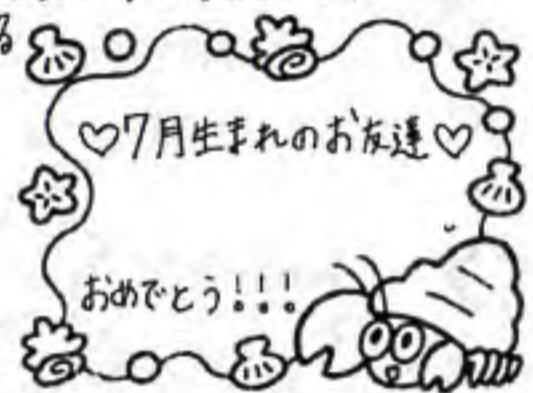 る
♡7月生まれのお友達♡
おめでとう!!!